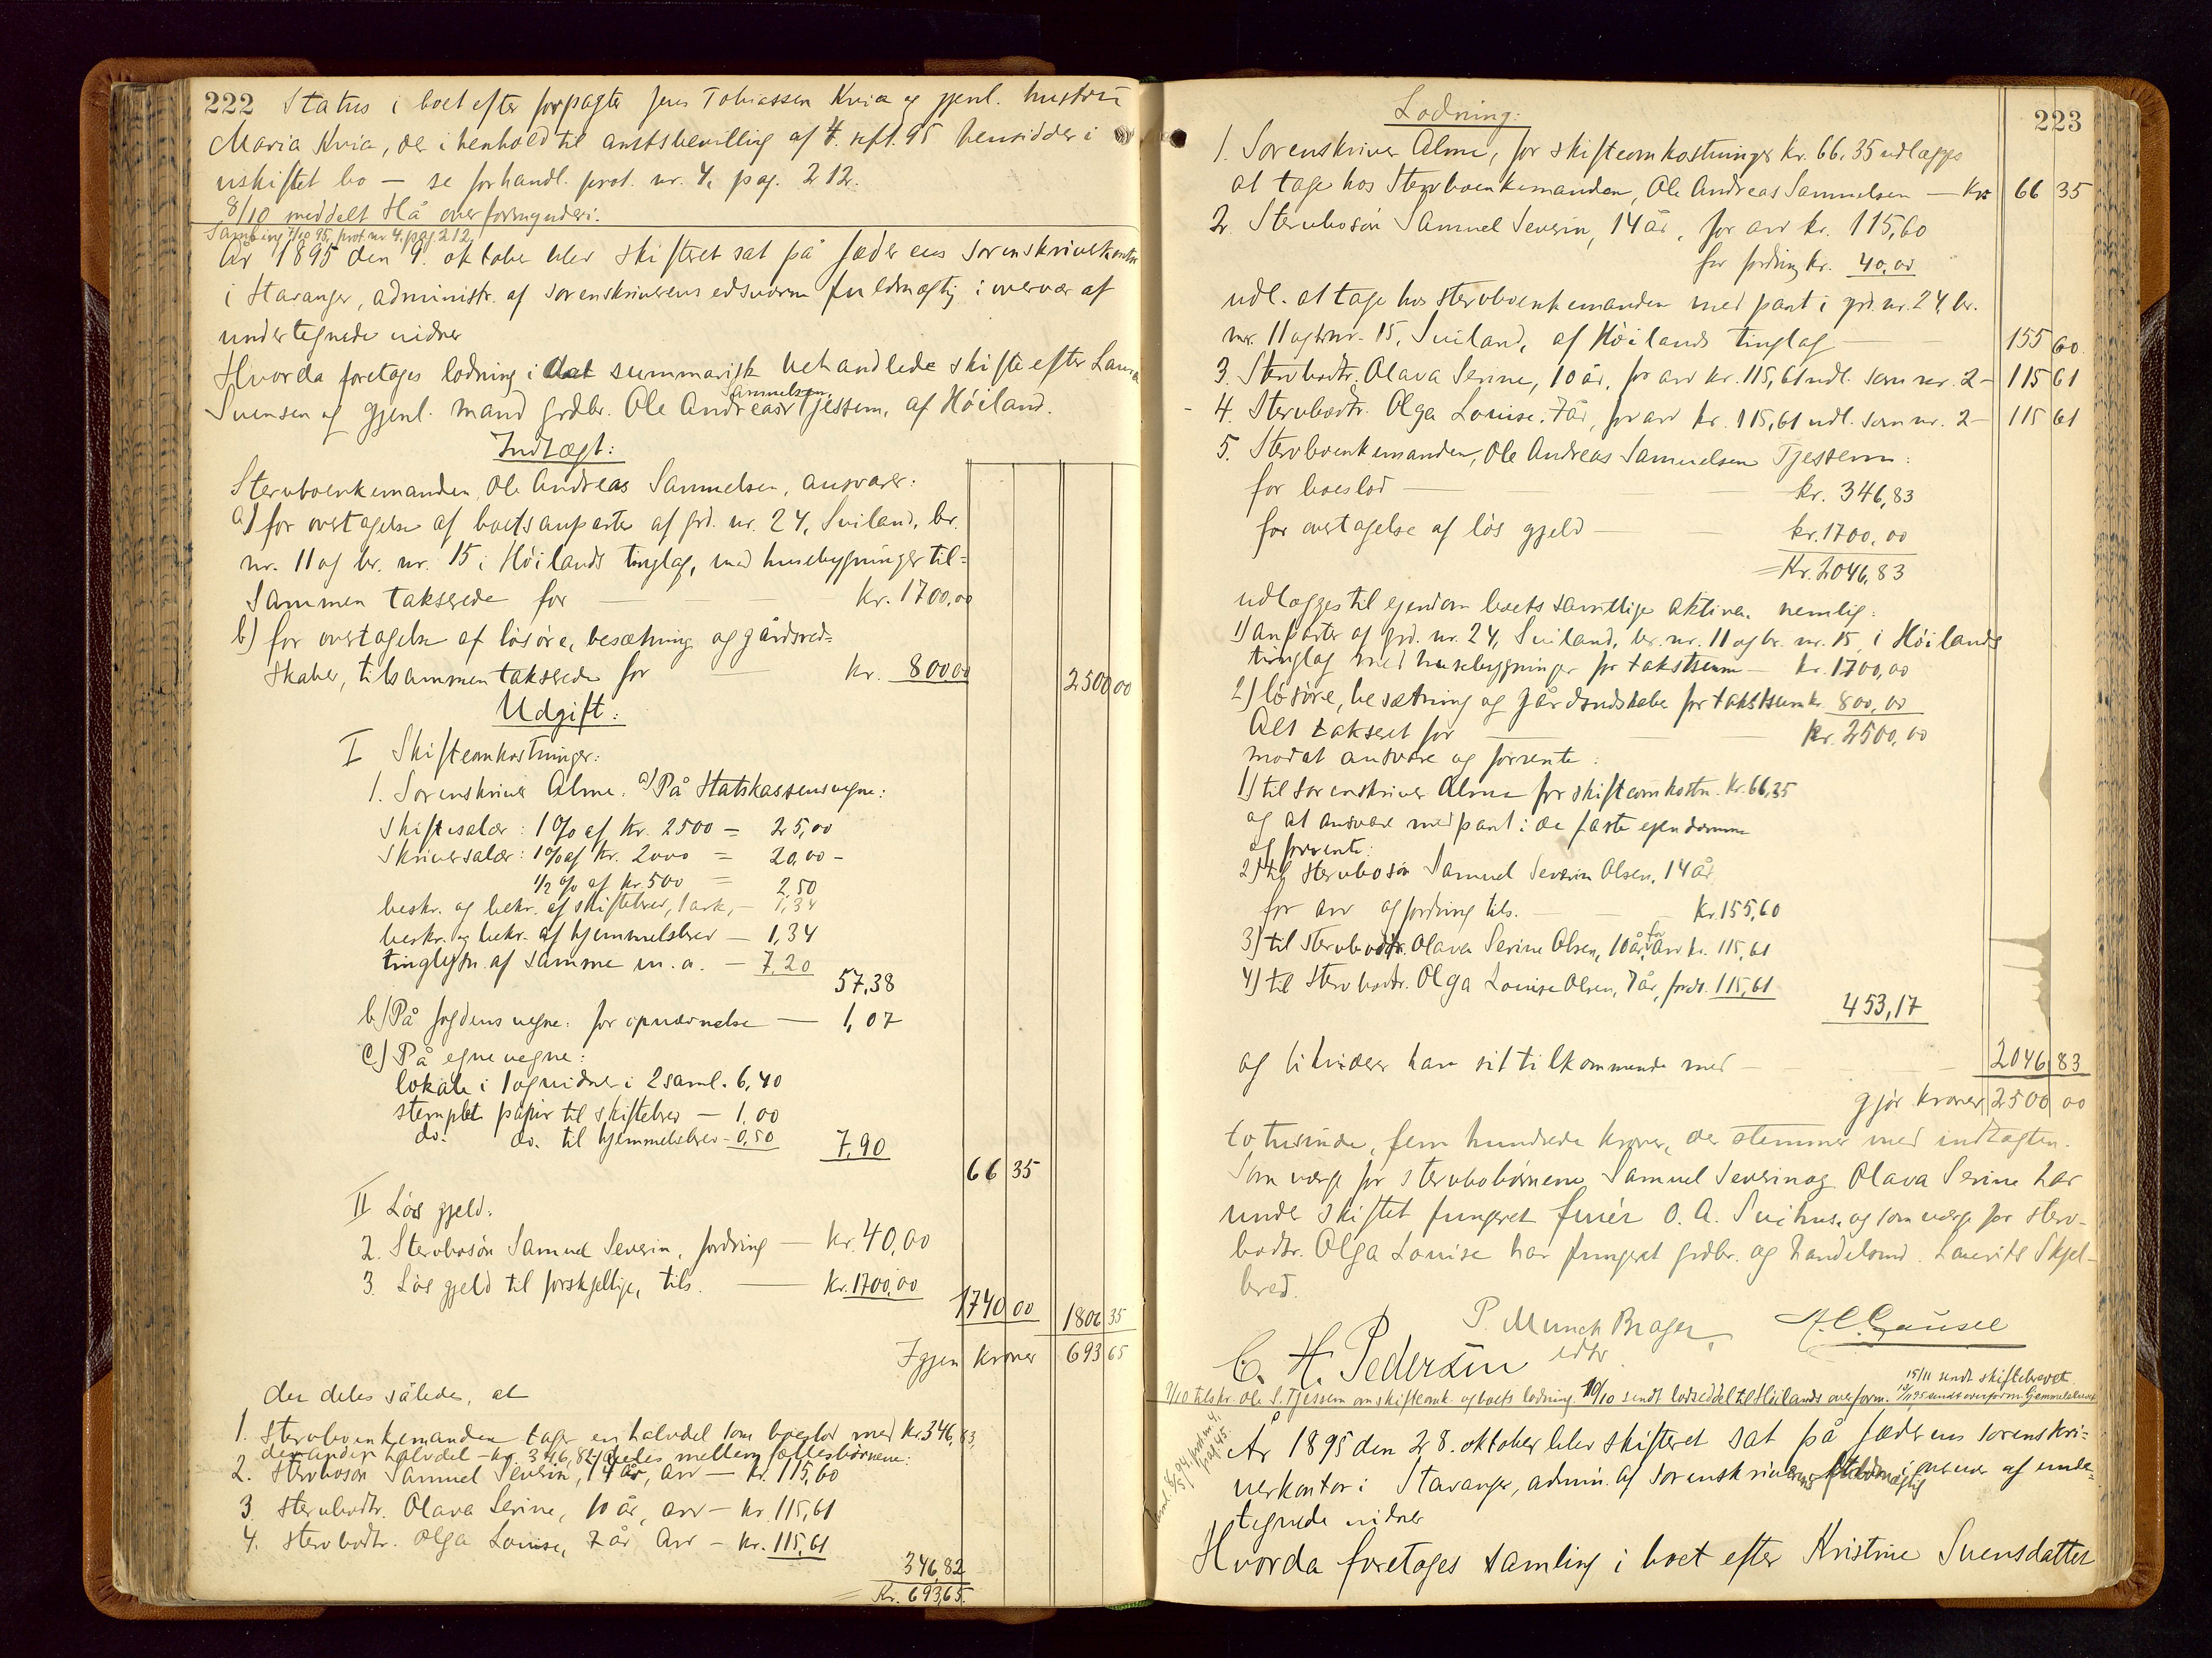 222 Status i boet efter forpagter Jens Tobiassen Kvia og gjenl. hustru
Maria Kvia, der i henhold til amtsbevilling af 4. sept. 95 hensidder i
uskiftet bo — se forhandl. prot. nr. 4, pag. 212.
8/10 meddelt Hå overformynderi.
Samling 7/10 95, prot. nr. 4, pag 212
År 1895 den 9. oktober blev skifteret sat på Jæderens sorenskriverkontor
i Stavanger, administr. af sorenskriverens edsvorne fuldmægtig i overvær af
undertegnede vidner
Hvorda foretages lodning i det summarisk behandlede skifte efter Laura
Svensen og gjenl. mand grdbr. Ole Andreas Samuelsen Tjessem, af Höiland.
Indtægt:
Stervboenkemanden, Ole Andreas Samuelsen, ansvarer:
a) for overtagelse af boets anparter af grd. nr. 24, Sviland, br.
nr. 11 og br. nr. 15 i Höilands tinglag, med husebygninger til=
sammen takserede for — kr. 1700,00
b) for overtagelse af lösöre, besætning og gårdsred=
skaber, tilsammen takserede for — kr. 800,00 2500 00
Udgift:
I Skifteomkostninger:
1. Sorenskriver Alme. a) På Statskassens vegne:
Skiftesalær: 1% af kr. 2500 = 25,00
Skriversalær: 1% af kr. 2000 = 20,00 -
1/2 % af kr. 500 = 2,50
beskr. og bekr. af skiftebrev, 1 ark, - 1,34
beskr. og bekr. af hjemmelsbrev — 1,34
tinglysn. af samme m. a. — 7,20
57,38
b) På fogdens vegne: for opnævnelse — 1,07
c) På egne vegne:
lokale i 1 og vidner i 2 saml. 6,40
stemplet papir til skiftebrev — 1,00
do. do. til hjemmelsbrev - 0,50 7,90
66 35
II Lös gjeld.
2. Stervbosön Samuel Severin, fordring — kr. 40,00
3. Lös gjeld til forskjellige, tils. — kr. 1700,00
1740 00 1806 35
Igjen kroner 693 65
der deles således, at
1. Stervboenkemanden tager en halvdel som boeslod med kr 346,83,
den anden halvdel - kr. 346,82 deles mellem fællesbörnene:
2. Stervbosön Samuel Severin, 14 år, arv — kr. 115,60
3. stervbodtr. Olava Serine, 10 år, arv — kr. 115,61
4. stervbodtr. Olga Louise, 7 år arv — kr. 115,61
346,82
= Kr. 693,65.
223
Lodning:
1. Sorenskriver Alme, for skifteomkostninger kr. 66,35 udlægges
at tage hos Stervboenkemanden, Ole Andreas Samuelsen — kr 66 35
2. Stervbosön Samuel Severin, 14 år, for arv kr. 115,60
for fordring kr. 40,00
udl. at tage hos stervboenkemanden med pant i grd. nr. 24, br.
nr. 11 og brnr. 15, Sviland, af Höilands tinglag — 155 60
3. Stervbodtr. Olava Serine, 10 år, for arv kr. 115,61 udl. som nr. 2 - 115 61
4. Stervbodtr. Olga Louise, 7 år, for arv kr. 115,61 udl. som nr. 2 - 115 61
5. Stervboenkemanden, Ole Andreas Samuelsen Tjessem:
for boeslod — kr. 346,83
for overtagelse af lös gjeld — kr. 1700,00
= Kr. 2046,83
udlægges til ejendom boets samtlige aktiva, nemlig:
1) anparter af grd. nr. 24, Sviland, br. nr. 11 og br. nr. 15, i Höilands
tinglag med husebygninger for takstsum — kr. 1700,00
2) lösöre, besætning og gårdsredskaber for takstsum kr. 800,00
Alt takseret for — kr. 2500,00
mod at ansvare og forrente:
1) til sorenskriver Alme for skifteomkostn. kr. 66,35
og at ansvare med pant i de faste ejendomme
og forrente:
2) til stervbosön Samuel Severin Olsen, 14 år
for arv og fordring tils. — kr. 155,60
3) til stervbodtr. Olava Serine Olsen, 10 år, for arv kr. 115,61
4) til stervbodtr. Olga Louise Olsen, 7 år, for do. 115,61
453,17
og likviderer ham sit tilkommende med — 2046 83
gjör kroner 2500 00
to tusinde, fem hundrede kroner, der stemmer med indtægten.
Som værge for stervbobörnene Samuel Severin og Olava Serine har
under skiftet fungeret furér O. A. Svihus, og som værge for sterv-
bodtr. Olga Louise har fungeret grdbr. og handelsmd. Laurits Skjel-
bred.
P. Munch Brager
edsv
A. C. Gausel
C. H. Pedersen
15/11 sendt skiftebrevet.
9/10 tilskr. Ole S. Tjessem om skifteomk. og boets lodning. 10/10 sendt lodseddel til Höilands overform.
År 1895 den 28. oktober blev skifteret sat på Jæderens sorenskri-
verkontor i Stavanger, admin. af sorenskriverens fuldmægtig i overvær af under=
tegnede vidner
Hvorda foretages samling i boet efter Kristine Svensdatter